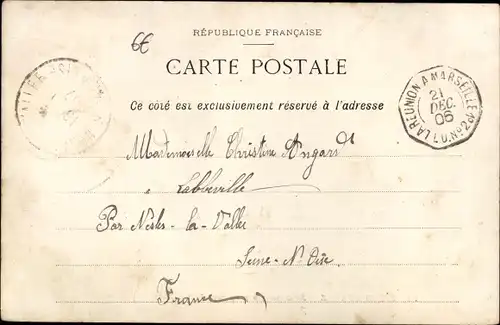 6€
RÉPUBLIQUE FRANÇAISE
CARTE POSTALE
Ce côté est exclusivement réservé à l'adresse
LA RÉUNION A MARSEILLE
21
DÉC.
06
L.U.Nº2
Mademoiselle Christine Angard
à Labbeville
Par Nesles-la-Vallée
Seine-N-Oise
France